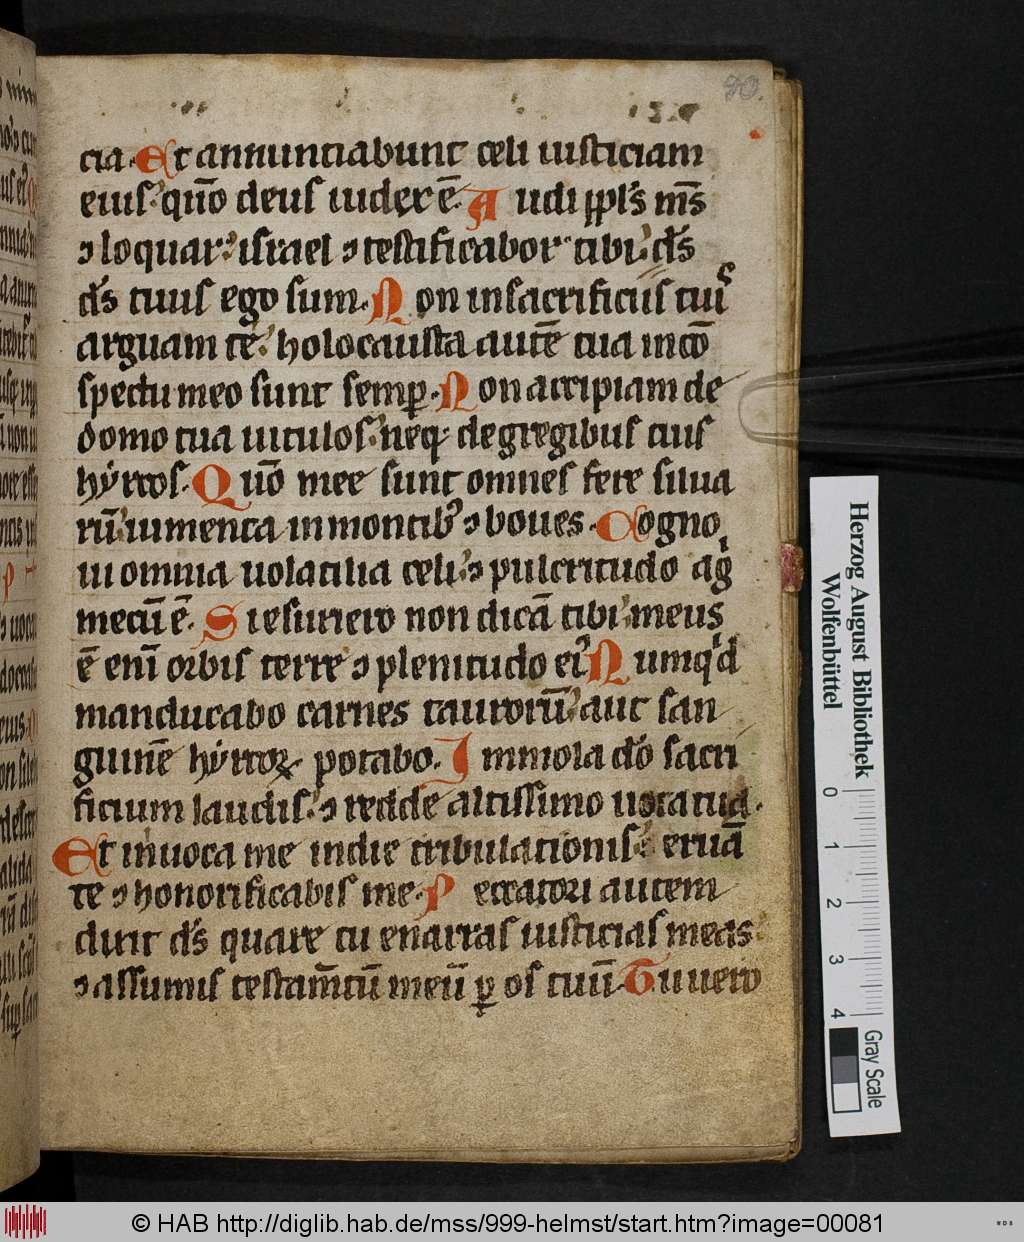 90.
cia. Et annunciabunt celi iusticiam
eius: qm̄o deus iudex ē. Audi pplˀs mˀs
⁊ loquar: israel ⁊ testificabor tibi: dˀs
dˀs tuus ego sum. Non in sacrificiis tuis
arguam te: holocausta autē tua in cō
spectu meo sunt semꝑ. Non accipiam de
domo tua uitulos: neqꝫ de gregibus tuis
hẏrcos. Quō mee sunt omnes fere silua
rū: iumenta in montibꝰ ⁊ boues. Cogno
ui omnia uolatilia celi: ⁊ pulcritudo agͥ
mecū ē. Si esuriero non dicā tibi: meus
ē enī orbis terre ⁊ plenitudo eiꝰ. Numqͥd
manducabo carnes taurorū: aut san
guinē hẏrcoꝝ potabo. Immola dō sacri
ficium laudis: ⁊ redde altissimo uota tua.
Et inuoca me in die tribulationis: eruā
te ⁊ honorificabis me. Peccatori autem
dixit dˀs quare tu enarras iusticias meas:
⁊ assumis testam̄tū meū ꝑ os tuū. Tu uero
Herzog August Bibliothek
Wolfenbüttel
0 1 2 3 4
Gray Scale
© HAB http://diglib.hab.de/mss/999-helmst/start.htm?image=00081